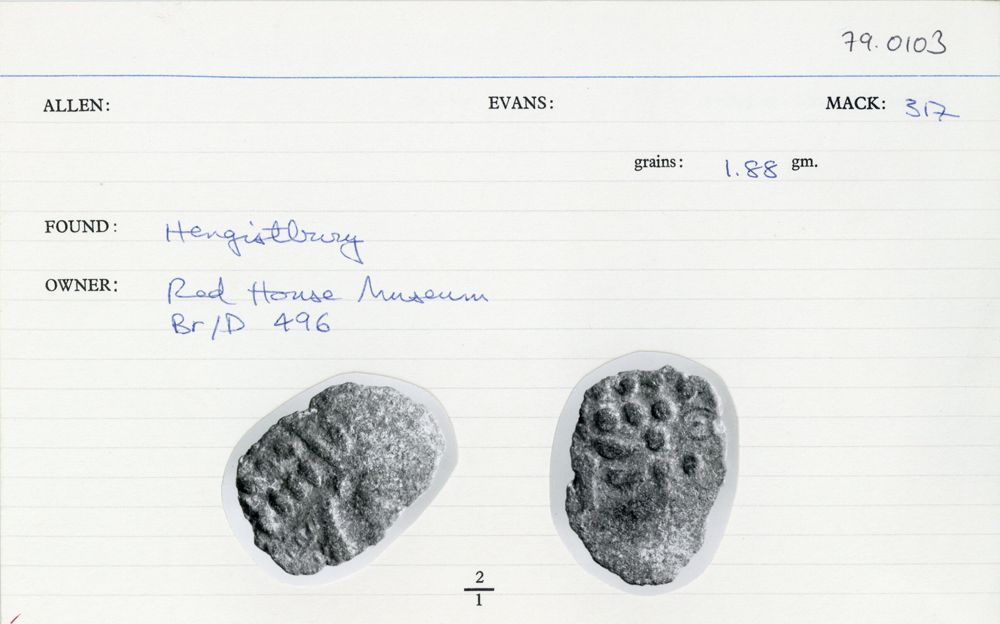 79.0103
ALLEN: EVANS: MACK: 317
grains: 1.88 gm.
FOUND: Hengistbury
OWNER: Red House Museum
Br/D 496
2
1